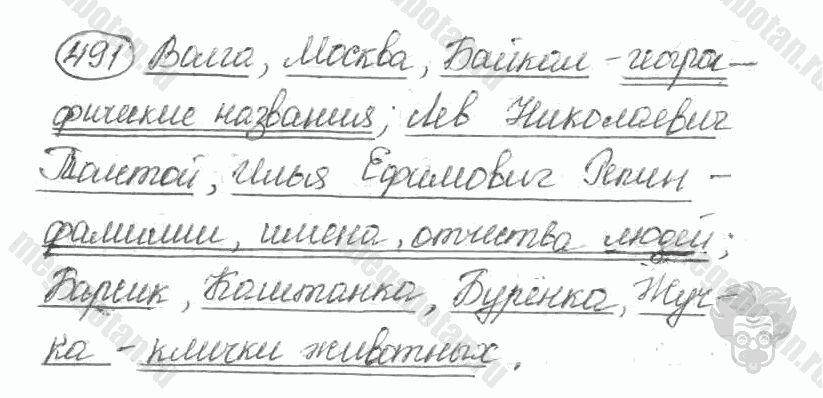 491 Волга, Москва, Байкал - геогра-
фические названия; Лев Николаевич
Толстой, Илья Ефимович Репин -
фамилии, имена, отчества людей;
Барсик, Каштанка, Бурёнка, Жуч-
ка - клички животных.
megabotan.ru